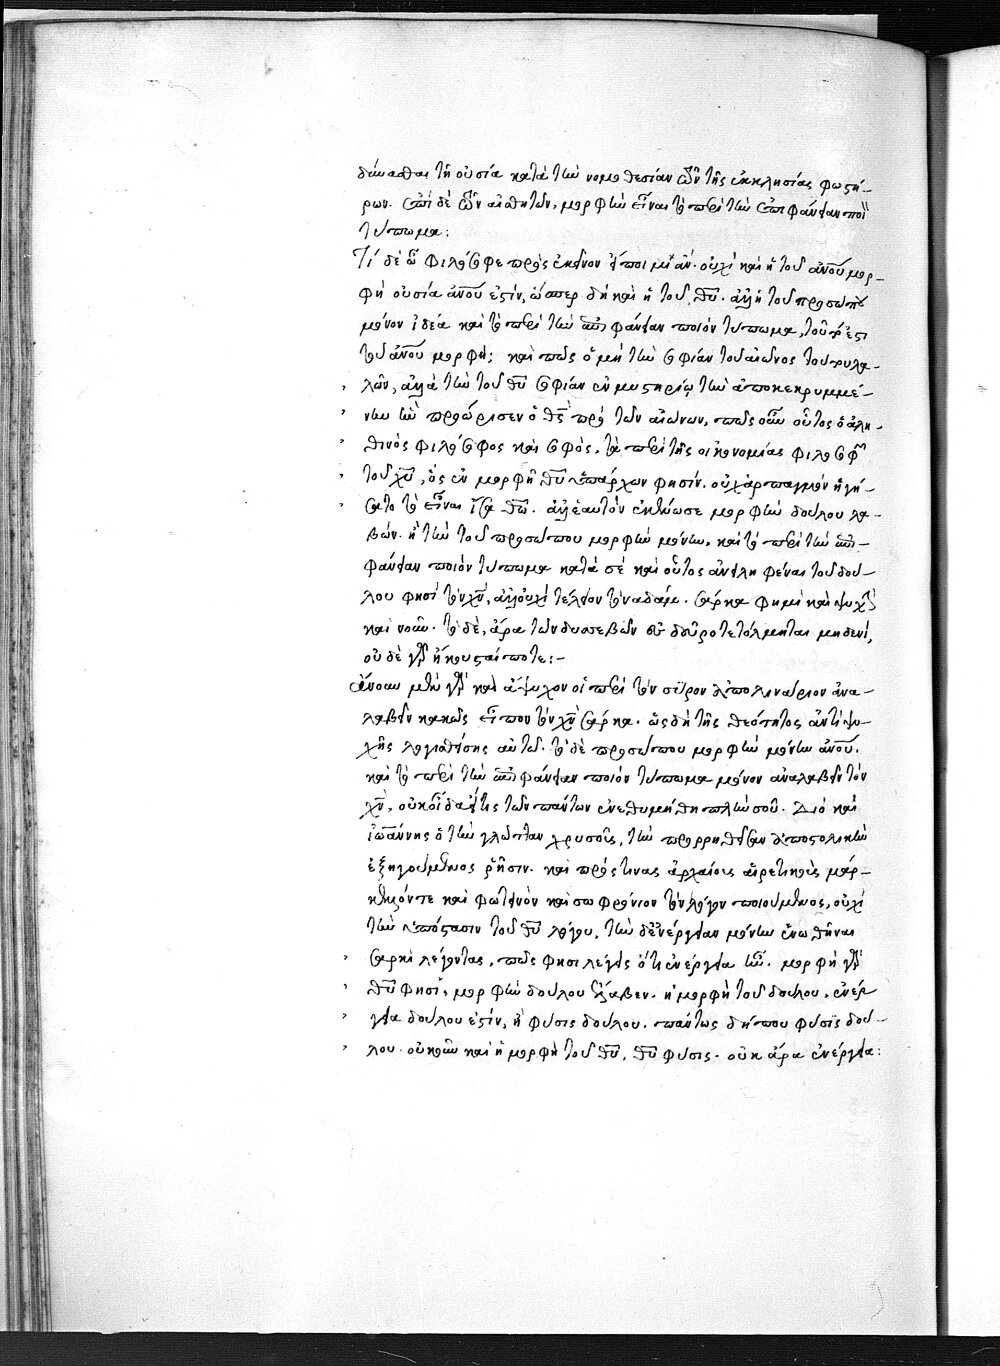 δύνασθαι τῆ οὐσία κατὰ τὴν νομοθεσίαν τῶν τῆς ἐκκλησίας φωστή-
ρων. ἐπὶ δὲ τῶν αἰσθητῶν, μορφὴν εἶναι τὸ περὶ τὴν ἐπιφάνειαν ποιὸν
τύπωμα:
Τί δὲ ὦ φιλόσοφε πρὸς ἐκεῖνον εἴποιμι ἄν. οὐχὶ καὶ ἡ τοῦ ἀνου μορ-
φὴ οὐσία ἀνου ἐστίν, ὥσπερ δὴ καὶ ἡ τοῦ θυ. ἀλλ' ἡ τοῦ προσώπου
μόνον ἰδέα καὶ τὸ περὶ τὴν ἐπιφάνειαν ποιὸν τύπωμα, τοῦτό ἐστι
τοῦ ἀνου μορφή; καὶ πῶς ὁ μὴ τὴν σοφίαν τοῦ αἰῶνος τούτου λα-
λῶν, ἀλλὰ τὴν τοῦ θυ σοφίαν ἐν μυστηρίῳ τὴν ἀποκεκρυμμέ-
νην ἣν προώρισεν ὁ θς πρὸ τῶν αἰώνων, πῶς οὖν οὗτος ὁ ἀλη-
θινὸς φιλόσοφος καὶ σοφὸς, τὰ περὶ τῆς οἰκονομίας φιλοσοφῶν
τοῦ χυ, ὃς ἐν μορφῆ θυ ὑπάρχων φησίν. οὐχ ἁρπαγμὸν ἡγή-
σατο τὸ εἶναι ἴσα θω. ἀλλ' ἑαυτὸν ἐκένωσε μορφὴν δούλου λα-
βών. ἢ τὴν τοῦ προσώπου μορφὴν μόνην, καὶ τὸ περὶ τὴν ἐπι-
φάνειαν ποιὸν τύπωμα κατὰ σὲ καὶ οὗτος ἀνειληφέναι τοῦ δού-
λου φησὶ τὸν χν, ἀλλ' οὐχὶ τέλειον τὸν ἀδάμ. σάρκα φημὶ καὶ ψυχὴν
καὶ νοῦν. τὸ δὲ, ἄρα τῶν δυσσεβῶν δεῦρο τετόλμηται μηδενί,
οὐδὲ γὰρ ἤκουσταί ποτε:-
ἄνουν μὲν γὰρ καὶ ἄψυχον οἱ περὶ τὸν σύρον ἀπολινάριον ἀνα-
λαβεῖν κακῶς εἶπον τὸν χν σάρκα. ὡς δὴ τῆς θεότητος ἀντὶ ψυ-
χῆς λογισθείσης αὐτῶ. τὸ δὲ προσώπου μορφὴν μόνην ἀνου.
καὶ τὸ περὶ τὴν ἐπιφάνειαν ποιὸν τύπωμα μόνον ἀναλαβεῖν τὸν
χν, οὐκ οἶδα εἴ τις τῶν πάντων ἐνεθυμήθη πλὴν σοῦ. Διὸ καὶ
ἰωάννης ὁ τὴν γλῶτταν χρυσοῦς, τὴν προρρηθεῖσαν ἀποστολικὴν
ἐξηγούμενος ῥῆσιν. καὶ πρός τινας ἀρχαίους αἱρετικοὺς μάρ-
κελλόν τε καὶ φωτεινὸν καὶ σωφρόνιον τὸν λόγον ποιούμενος, οὐχὶ
τὴν ὑπόστασιν τοῦ θυ λόγου, τὴν δὲ ἐνέργειαν μόνην ἑνωθῆναι
σαρκὶ λέγοντας, πῶς φησι λέγεις ὅτι ἐνέργεια ἦν. μορφὴ γὰρ
θυ φησὶ, μορφὴν δούλου ἔλαβεν. ἡ μορφὴ τοῦ δούλου, ἐνέρ
γεια δούλου ἐστίν, ἢ φύσις δούλου. πάντως δήπου φύσις δού-
λου. οὐκοῦν καὶ ἡ μορφὴ τοῦ θυ, θυ φύσις. οὐκ ἄρα ἐνέργεια: